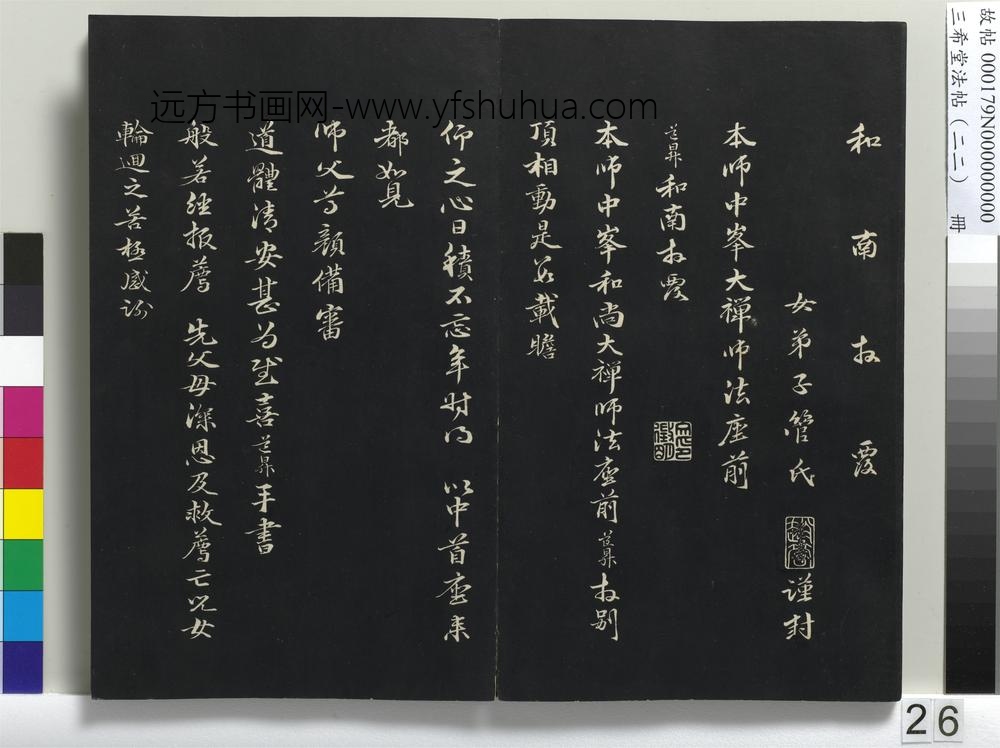 和南拜覆
女弟子管氏 謹封
本师中峯大禅师法座前
道昇和南拜覆
本师中峯和尚大禅师法座前道昇拜别
頂相動是数載瞻
仰之心日積不忘年时得 以中首座来
都如見
师父尊颜備審
道體清安甚为慰喜道昇手書
般若经报薦 先父母深恩及救薦亡兒女
輪迴之苦極感谢
远方书画网-www.yfshuhua.com
故帖 000179N000000000
三希堂法帖（二二） 冊
26